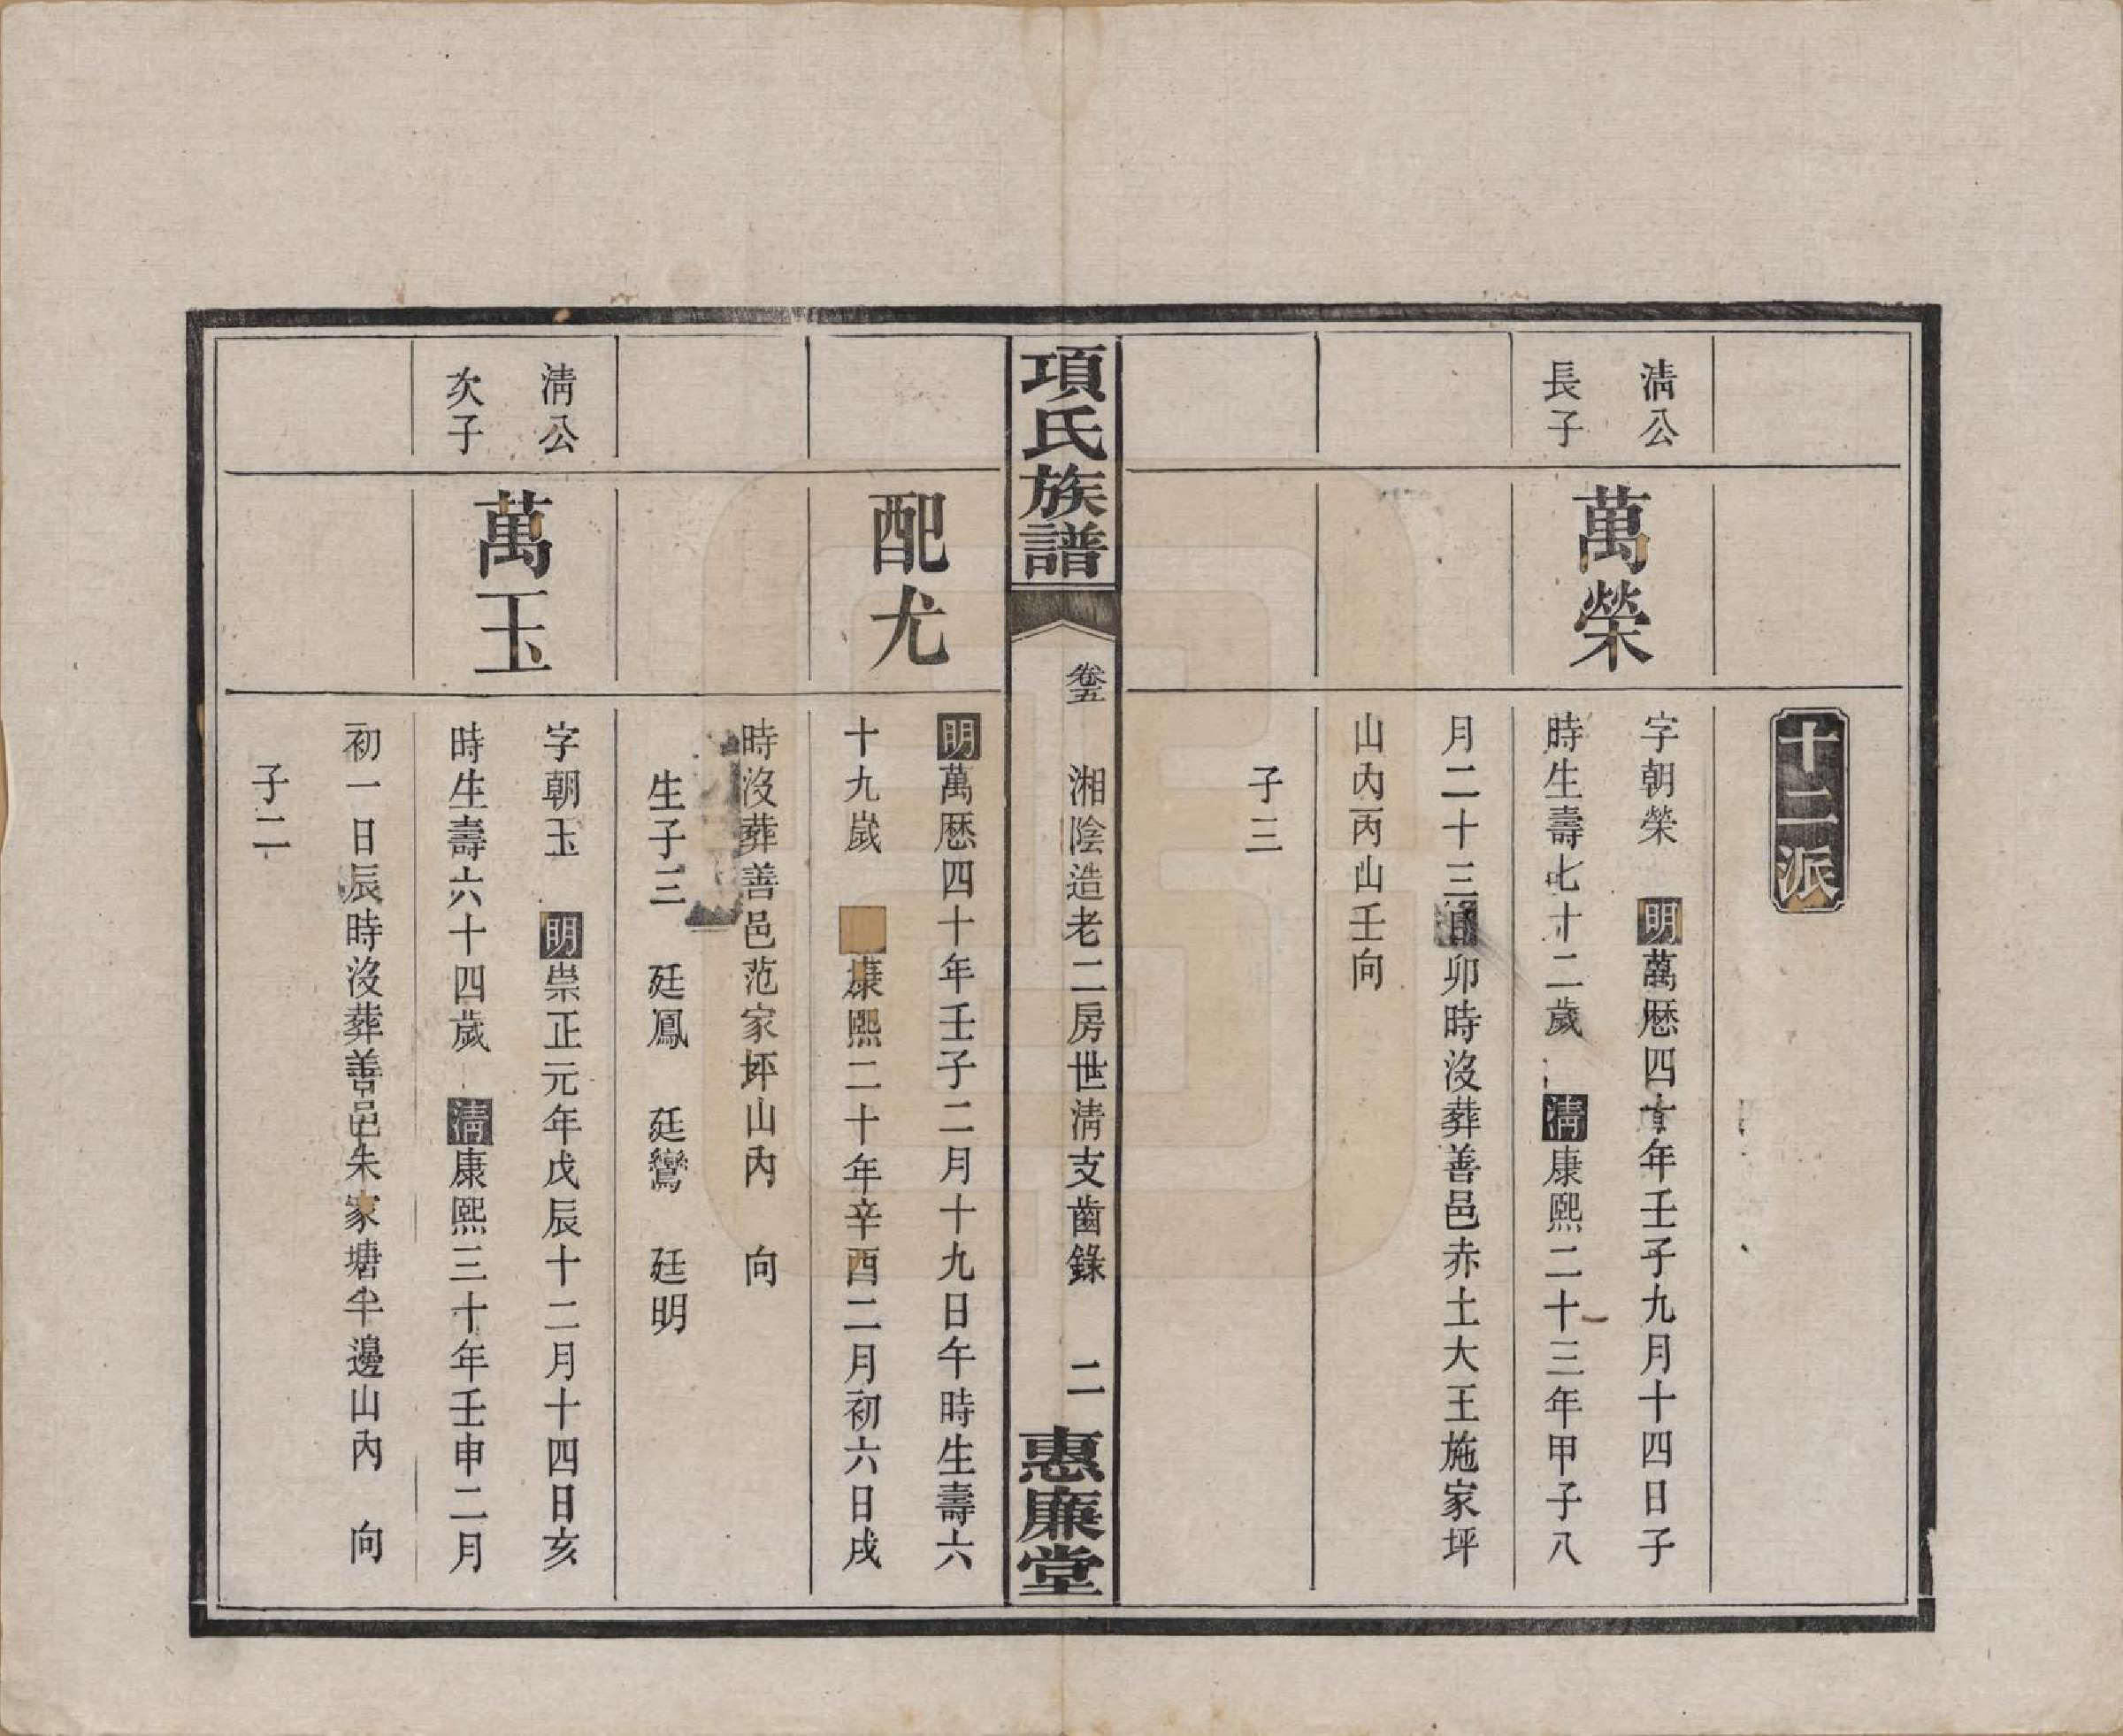 十二派
清公
長子
萬榮
字朝榮　明萬厯四十年壬子九月十四日子
時生壽七十二歲　清康熙二十三年甲子八
月二十三日卯時沒葬善邑赤土大王施家坪
山內丙山壬向
子三
項氏族譜
卷五
湘陰造老二房世清支齒錄
二
惠廉堂
配尤
明萬厯四十年壬子二月十九日午時生壽六
十九歲　康熙二十年辛酉二月初六日戌
時沒葬善邑范家坪山內　向
生子三　廷鳳　廷鸞　廷明
清公
次子
萬玉
字朝玉　明崇正元年戊辰十二月十四日亥
時生壽六十四歲　清康熙三十年壬申二月
初一日辰時沒葬善邑朱家塘半邊山內　向
子二